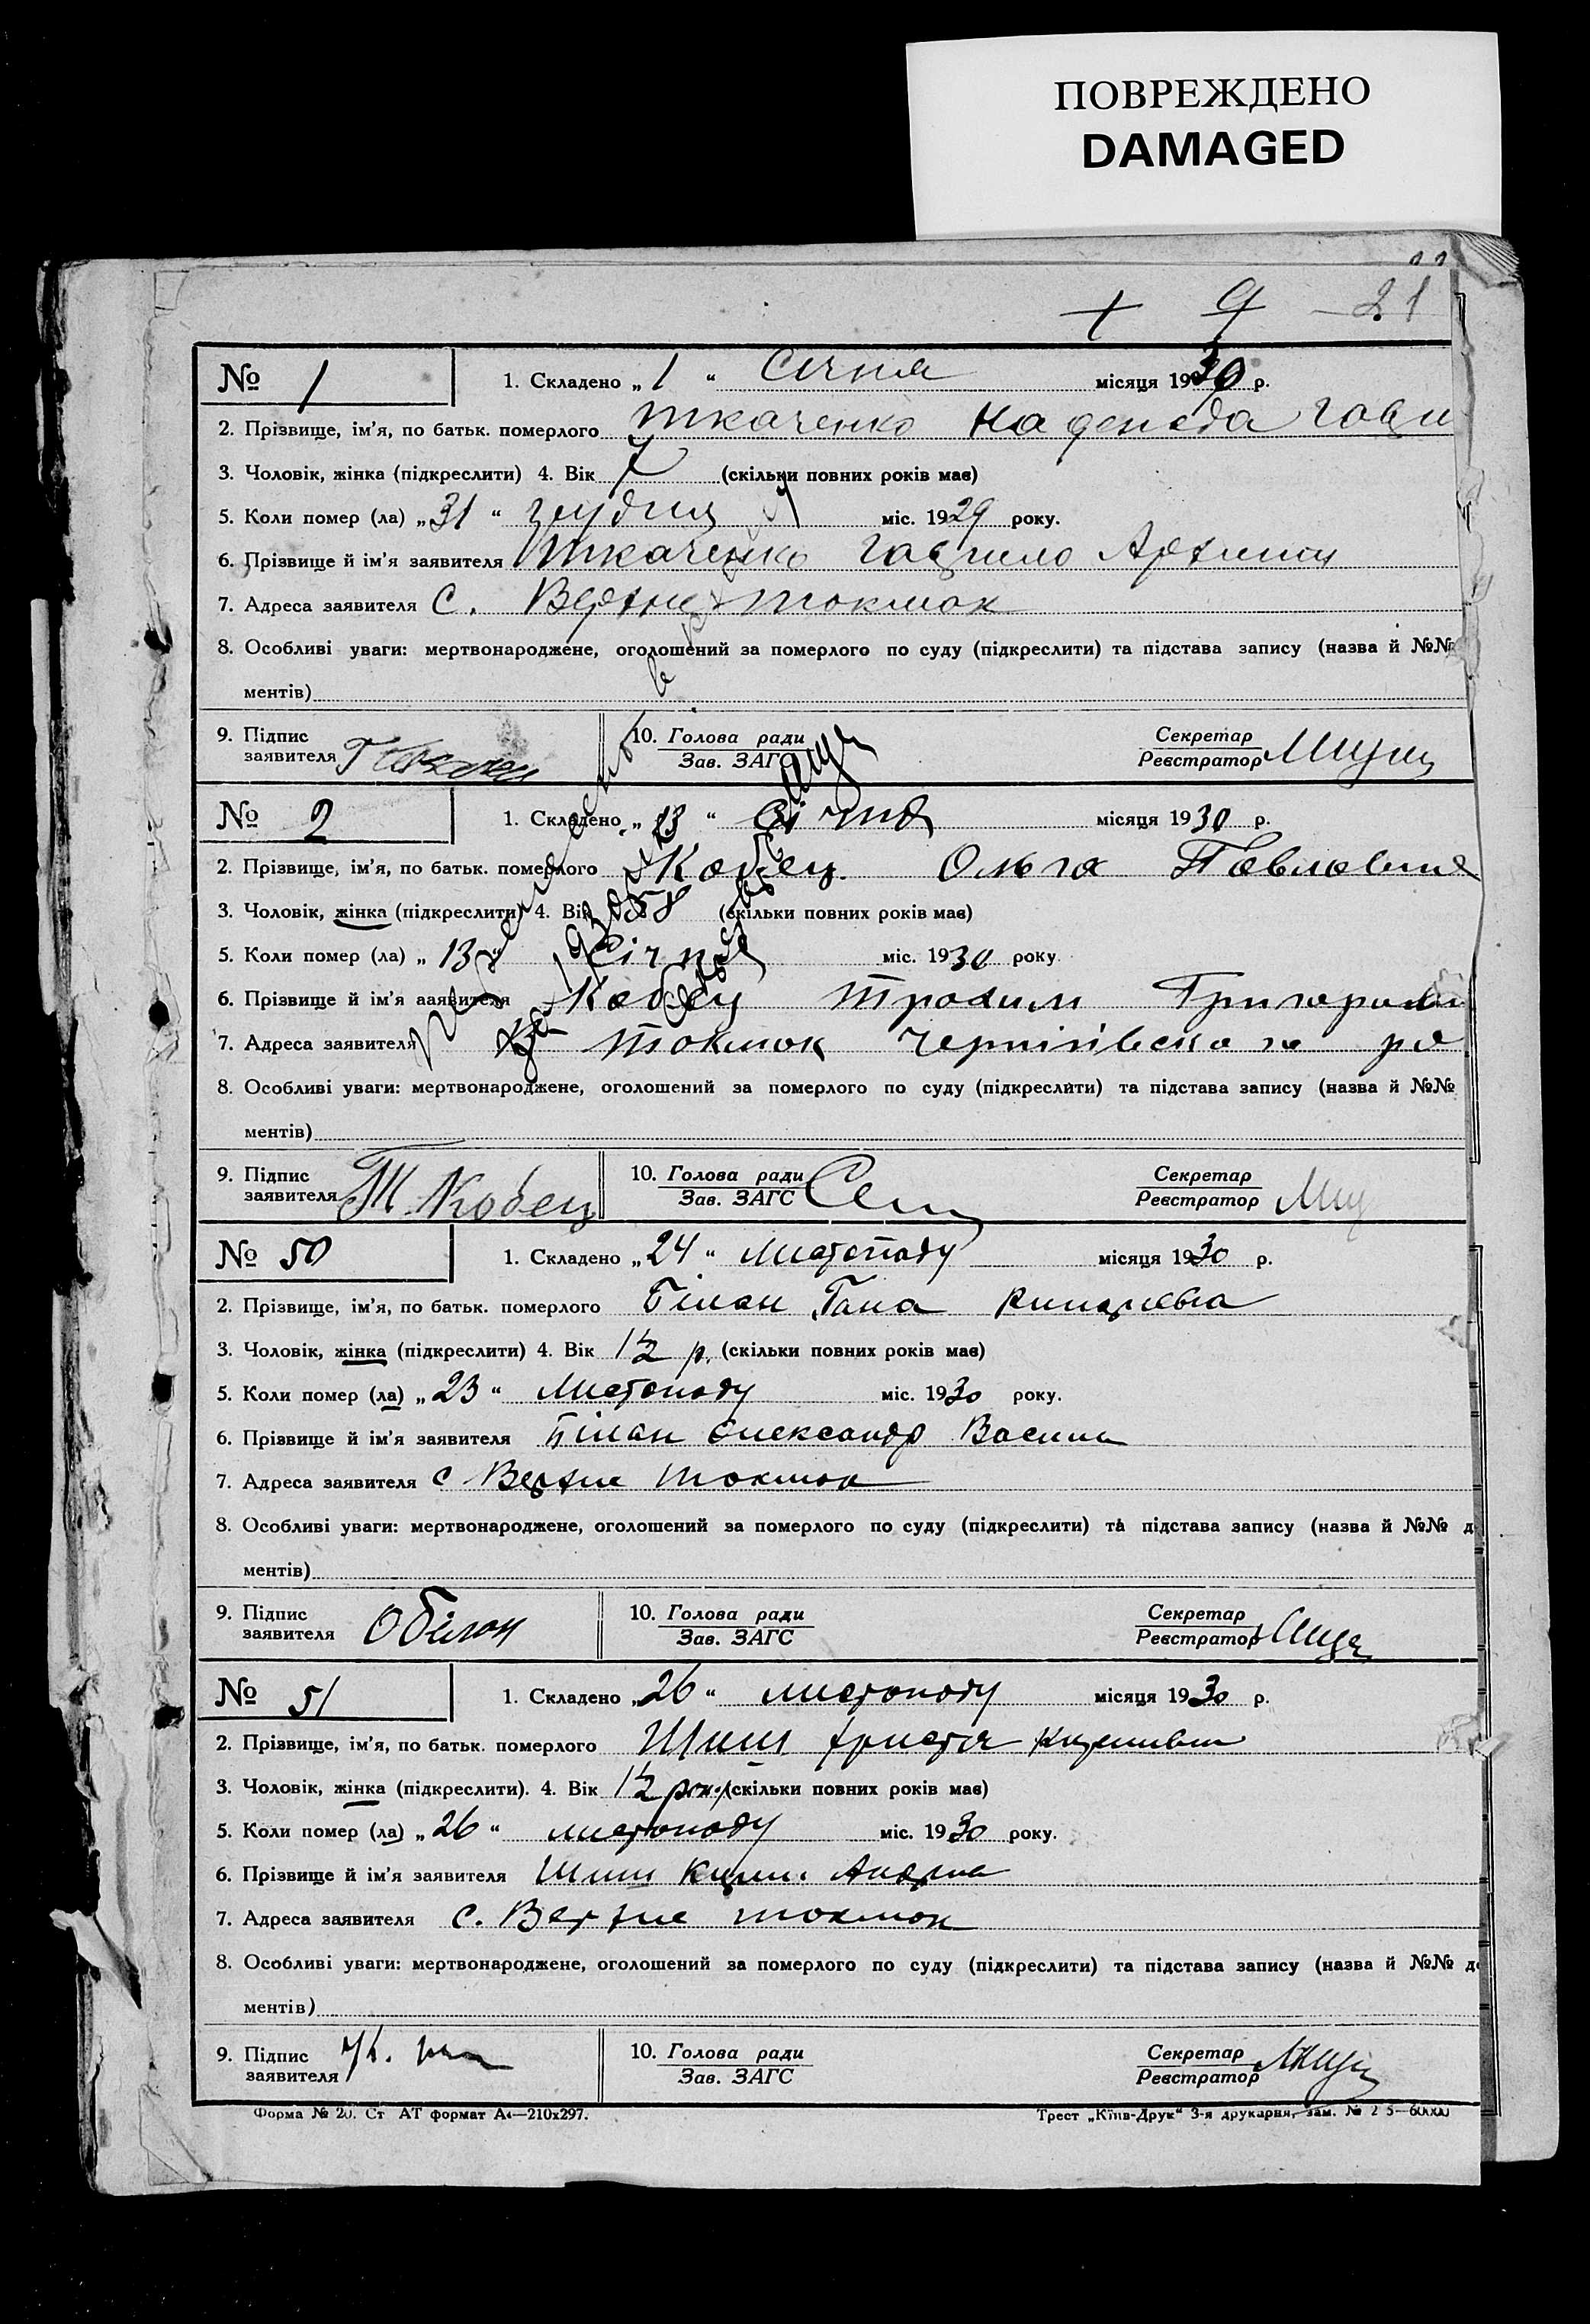 ПОВРЕЖДЕНО
DAMAGED
+ 9 21
№ 1 1. Складено „1“ Січня місяця 1930 р.
2. Прізвище, ім'я, по батьк. померлого Ткаченко Надежда Гаври
3. Чоловік, жінка (підкреслити) 4. Вік 7 (скільки повних років має)
5. Коли помер (ла) „31“ грудня міс. 1929 року.
6. Прізвище й ім'я заявителя Ткаченко Гаврило Архипи
7. Адреса заявителя С. Верхне Токмак
8. Особливі уваги: мертвонароджене, оголошений за померлого по суду (підкреслити) та підстава запису (назва й №№
ментів)
9. Підпис заявителя 10. Голова ради Секретар
Зав. ЗАГС Реєстратор
№ 2 1. Складено „13“ Січня місяця 1930 р.
2. Прізвище, ім'я, по батьк. померлого Кобец Ольга Павловна
3. Чоловік, жінка (підкреслити) 4. Вік 58 (скільки повних років має)
5. Коли помер (ла) „13“ Січня міс. 1930 року.
6. Прізвище й ім'я заявителя Кобец Трохим Григорови
7. Адреса заявителя Токмак Чернігівського ра
8. Особливі уваги: мертвонароджене, оголошений за померлого по суду (підкреслити) та підстава запису (назва й №№
ментів)
9. Підпис заявителя Т Кобец 10. Голова ради Секретар
Зав. ЗАГС Реєстратор
№ 50 1. Складено „24“ Листопаду місяця 1930 р.
2. Прізвище, ім'я, по батьк. померлого Білан Гана
3. Чоловік, жінка (підкреслити) 4. Вік 1½ р. (скільки повних років має)
5. Коли помер (ла) „23“ Листопаду міс. 1930 року.
6. Прізвище й ім'я заявителя Білан Олександр Васили
7. Адреса заявителя с Верхне Токмак
8. Особливі уваги: мертвонароджене, оголошений за померлого по суду (підкреслити) та підстава запису (назва й №№ д
ментів)
9. Підпис заявителя О Білан 10. Голова ради Секретар
Зав. ЗАГС Реєстратор
№ 51 1. Складено „26“ листопаду місяця 1930 р.
2. Прізвище, ім'я, по батьк. померлого Шиш Христя
3. Чоловік, жінка (підкреслити). 4. Вік 1½ рок. (скільки повних років має)
5. Коли помер (ла) „26“ листопаду міс. 1930 року.
6. Прізвище й ім'я заявителя Шиш Андрие
7. Адреса заявителя с. Верхне Токмак
8. Особливі уваги: мертвонароджене, оголошений за померлого по суду (підкреслити) та підстава запису (назва й №№ д
ментів)
9. Підпис заявителя 10. Голова ради Секретар
Зав. ЗАГС Реєстратор
Форма № 20. Ст АТ формат А4—210х297. Трест „Київ-Друк“ 3-я друкарня, зам. №